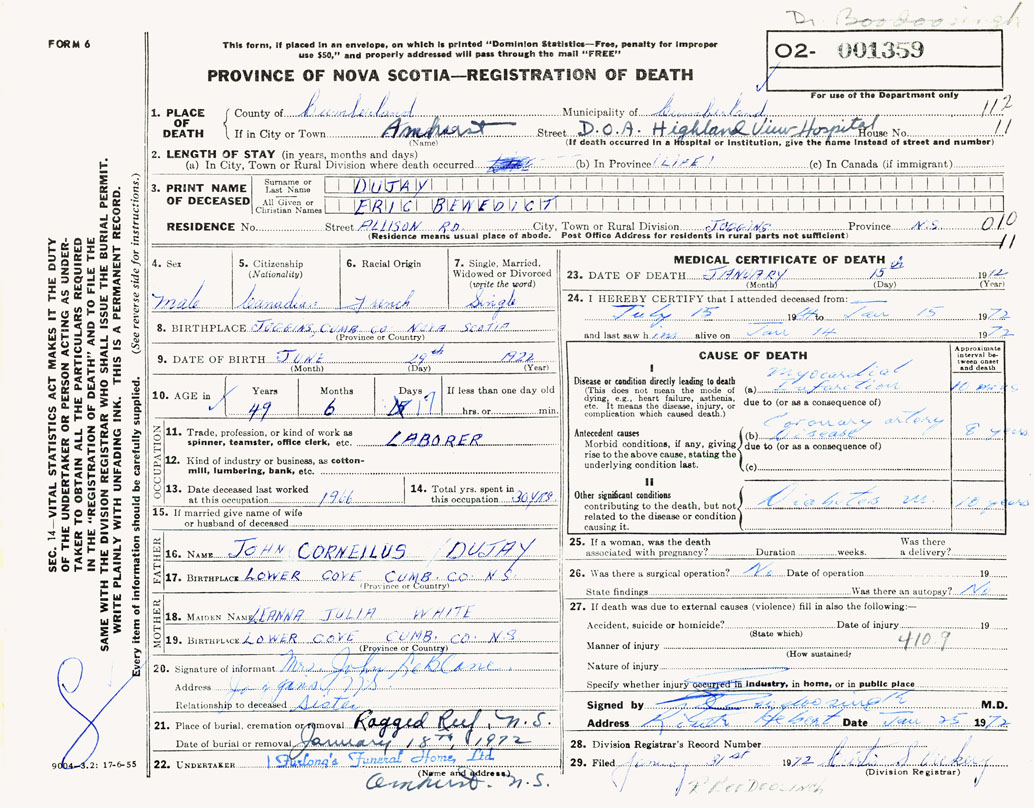 Dr. Boodoosingh
FORM 6
This form, if placed in an envelope, on which is printed "Dominion Statistics—Free, penalty for improper
use $50," and properly addressed will pass through the mail "FREE"
PROVINCE OF NOVA SCOTIA—REGISTRATION OF DEATH
02- 001359
For use of the Department only
1. PLACE OF DEATH County of Cumberland Municipality of Cumberland 112
If in City or Town Amherst Street D.O.A. Highland View Hospital House No. 11
(Name) (If death occurred in a Hospital or Institution, give the name instead of street and number)
2. LENGTH OF STAY (in years, months and days)
(a) In City, Town or Rural Division where death occurred (b) In Province LIFE (c) In Canada (if immigrant)
3. PRINT NAME OF DECEASED
Surname or Last Name DUJAY
All Given or Christian Names ERIC BENEDICT
RESIDENCE No. Street ALLISON RD. City, Town or Rural Division JOGGINS Province N.S. 010
(Residence means usual place of abode. Post Office Address for residents in rural parts not sufficient) 11
4. Sex Male
5. Citizenship (Nationality) Canadian
6. Racial Origin French
7. Single, Married, Widowed or Divorced (write the word) Single
8. BIRTHPLACE JOGGINS, CUMB. CO. NOVA SCOTIA
(Province or Country)
9. DATE OF BIRTH JUNE 29th 1922
(Month) (Day) (Year)
10. AGE in Years 49 Months 6 Days 17 If less than one day old hrs. or min.
OCCUPATION
11. Trade, profession, or kind of work as spinner, teamster, office clerk, etc. LABORER
12. Kind of industry or business, as cotton-mill, lumbering, bank, etc.
13. Date deceased last worked at this occupation 1966
14. Total yrs. spent in this occupation 30 YRS.
15. If married give name of wife or husband of deceased
FATHER
16. NAME JOHN CORNEILUS DUJAY
17. BIRTHPLACE LOWER COVE CUMB. CO. N.S.
(Province or Country)
MOTHER
18. MAIDEN NAME LEANNA JULIA WHITE
19. BIRTHPLACE LOWER COVE CUMB. CO. N.S
(Province or Country)
20. Signature of informant Mrs. John LeBlanc
Address Joggins N.S.
Relationship to deceased Sister
21. Place of burial, cremation or removal Ragged Reef, N.S.
Date of burial or removal January 18th, 1972
22. UNDERTAKER Furlong's Funeral Home, Ltd
(Name and address)
Amherst, N.S.
9004-3.2: 17-6-55
MEDICAL CERTIFICATE OF DEATH
23. DATE OF DEATH JANUARY 15 th 1972
(Month) (Day) (Year)
24. I HEREBY CERTIFY that I attended deceased from:
July 15 19 to Jan 15 1972
and last saw him alive on Jan 14 1972
CAUSE OF DEATH
Approximate interval between onset and death
I
Disease or condition directly leading to death
(This does not mean the mode of dying, e.g., heart failure, asthenia, etc. It means the disease, injury, or complication which caused death.)
(a) Myocardial Infarction 10 mins
due to (or as a consequence of)
Antecedent causes
Morbid conditions, if any, giving rise to the above cause, stating the underlying condition last.
(b) Coronary artery Disease 8 years
due to (or as a consequence of)
(c)
II
Other significant conditions
contributing to the death, but not related to the disease or condition causing it.
Diabetes m. years
25. If a woman, was the death associated with pregnancy? Duration weeks. Was there a delivery?
26. Was there a surgical operation? No Date of operation 19
State findings Was there an autopsy? No
27. If death was due to external causes (violence) fill in also the following:—
Accident, suicide or homicide? Date of injury 19
(State which)
Manner of injury 410.9
(How sustained)
Nature of injury
Specify whether injury occurred in industry, in home, or in public place
Signed by Boodoosingh M.D.
Address River Hebert Date Jan 25 1972
28. Division Registrar's Record Number
29. Filed January 31st 1972
(Division Registrar)
BOODOOSINGH
SEC. 14—VITAL STATISTICS ACT MAKES IT THE DUTY
OF THE UNDERTAKER OR PERSON ACTING AS UNDER-
TAKER TO OBTAIN ALL THE PARTICULARS REQUIRED
IN THE "REGISTRATION OF DEATH" AND TO FILE THE
SAME WITH THE DIVISION REGISTRAR WHO SHALL ISSUE THE BURIAL PERMIT.
WRITE PLAINLY WITH UNFADING INK. THIS IS A PERMANENT RECORD.
Every item of information should be carefully supplied. (See reverse side for instructions.)